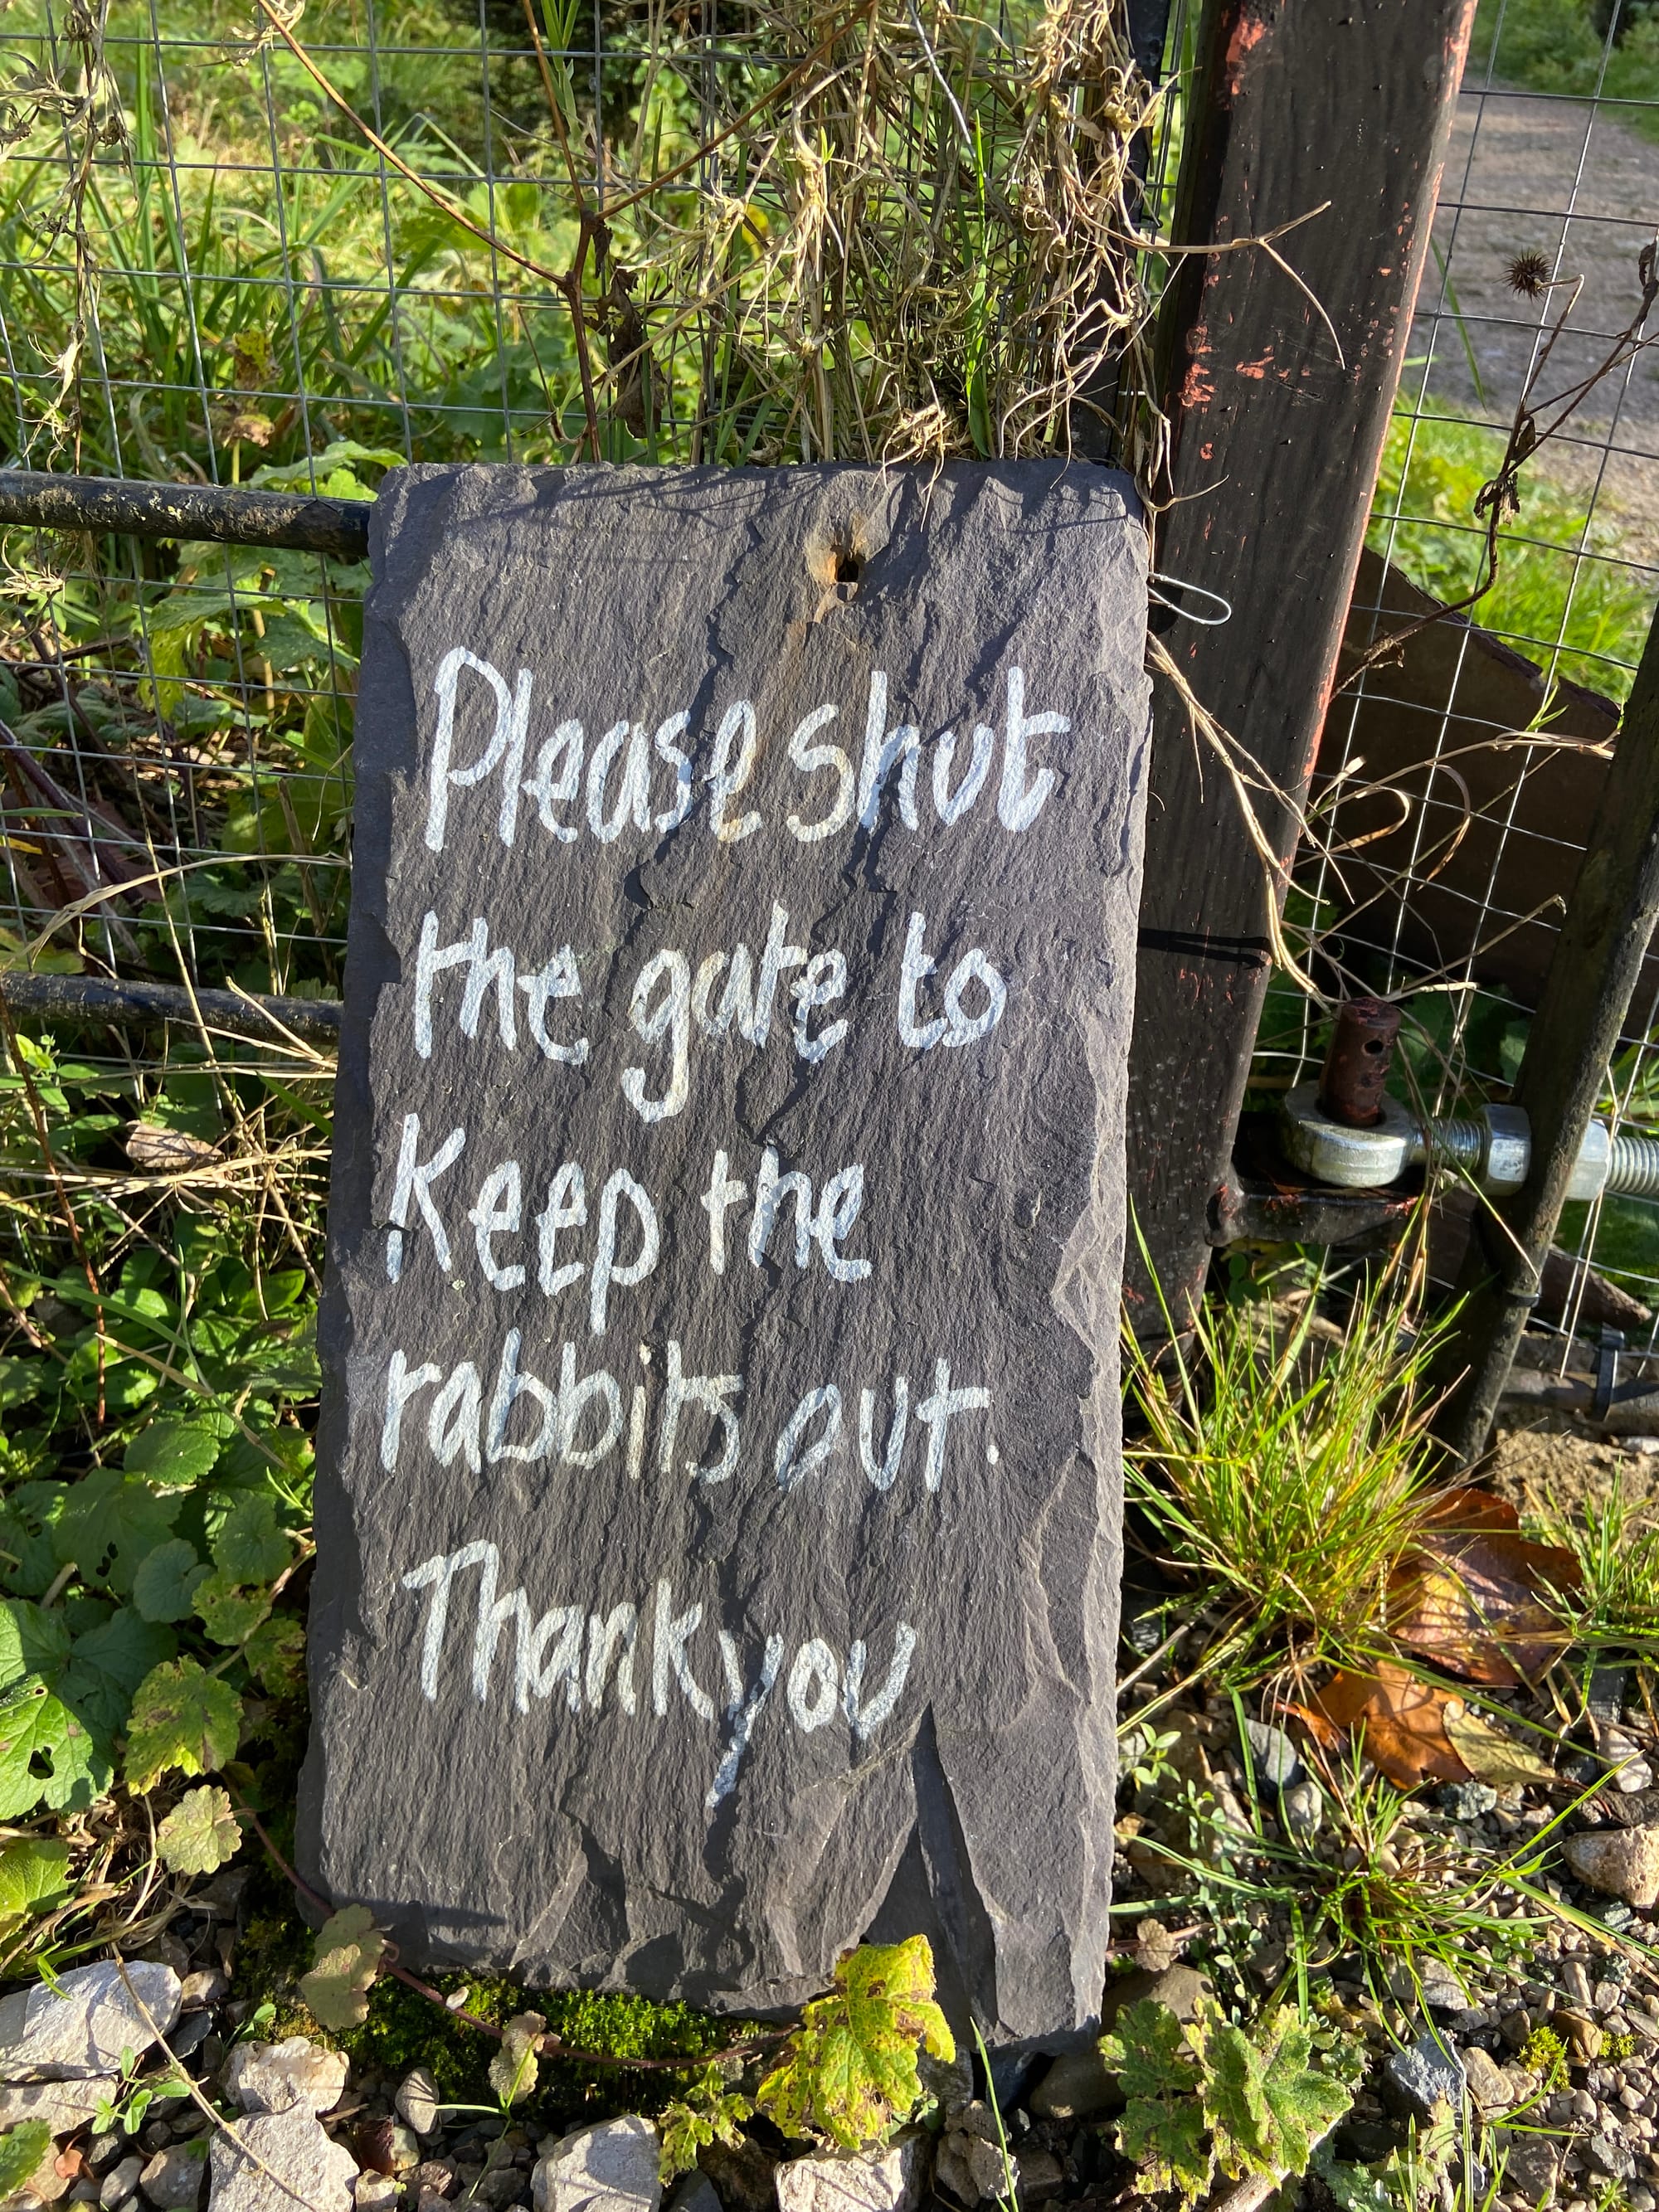 Please shut
the gate to
Keep the
rabbits out.
Thank you